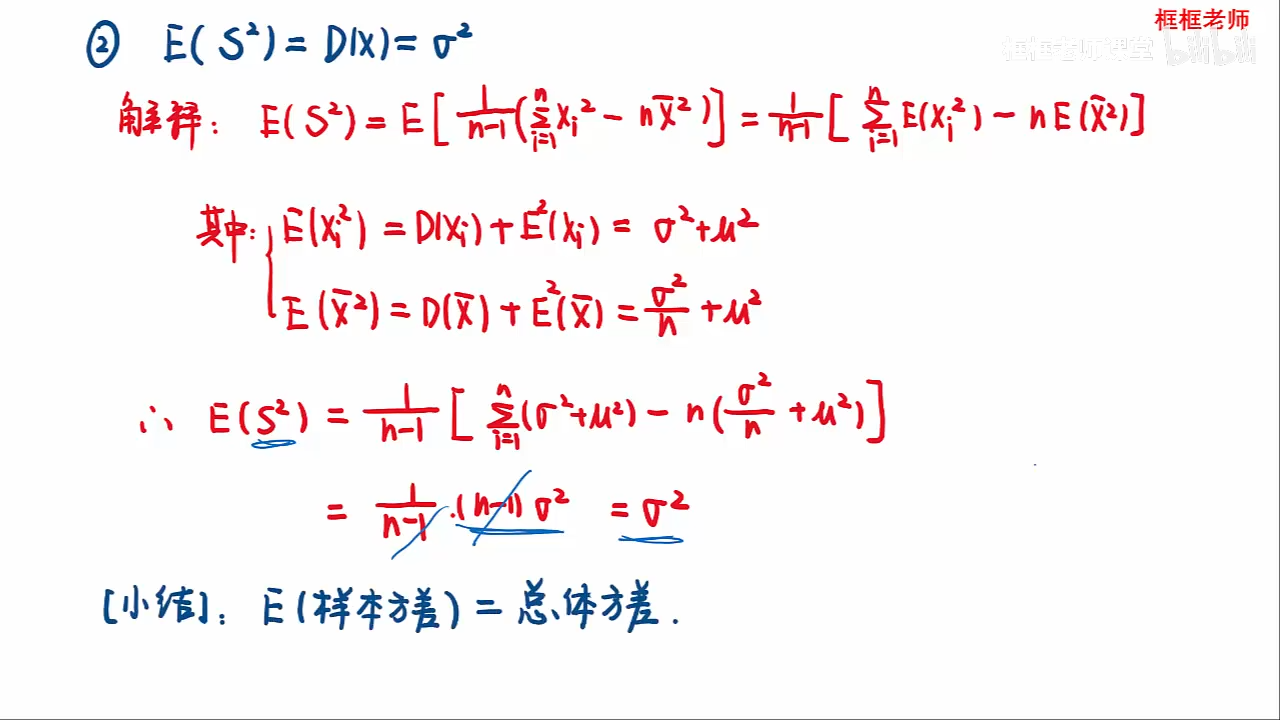 框框老师
框框老师课堂 bilibili
② E(S²) = D(X) = σ²
解释: E(S²) = E[1/(n-1) (∑_{i=1}^{n} Xi² - nX̄²)] = 1/(n-1) [∑_{i=1}^{n} E(Xi²) - nE(X̄²)]
其中: E(Xi²) = D(Xi) + E²(Xi) = σ²+μ²
E(X̄²) = D(X̄) + E²(X̄) = σ²/n + μ²
∴ E(S²) = 1/(n-1) [∑_{i=1}^{n} (σ²+μ²) - n(σ²/n + μ²)]
= 1/(n-1) ·(n-1)σ² = σ²
[小结]: E(样本方差) = 总体方差.